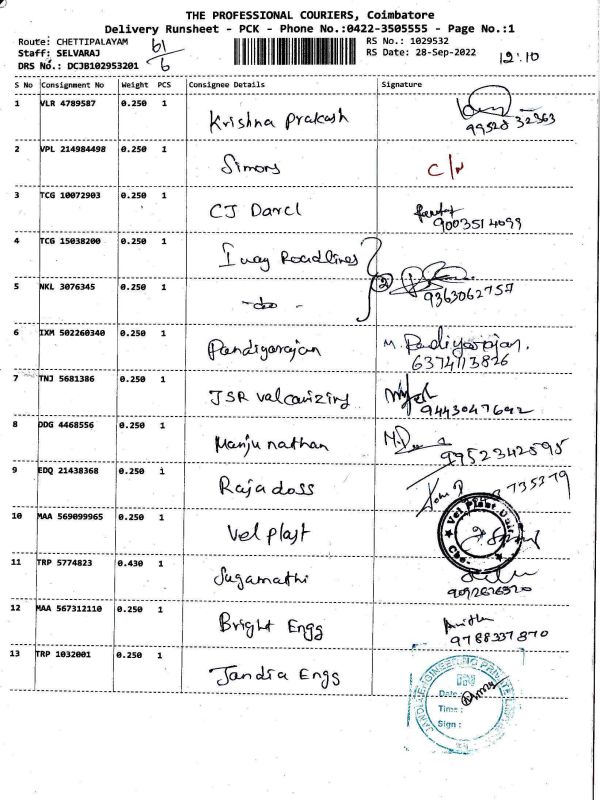 THE PROFESSIONAL COURIERS, Coimbatore
Delivery Runsheet - PCK - Phone No.:0422-3505555 - Page No.:1
Route: CHETTIPALAYAM
Staff: SELVARAJ
DRS No.: DCJB102953201
61/6
RS No.: 1029532
RS Date: 28-Sep-2022
12:10
S No Consignment No Weight PCS Consignee Details Signature
1 VLR 4789587 0.250 1 Krishna Prakash
99528 32363
2 VPL 214984498 0.250 1 Simons C/N
3 TCG 10072903 0.250 1 CJ Darcl
9003514099
4 TCG 15038200 0.250 1 Iway Roadlines
5 NKL 3076345 0.250 1 - do - 2
9363062757
6 IXM 502260340 0.250 1 Pandiyarajan M. Pandiyarajan.
6374113826
7 TNJ 5681386 0.250 1 JSR Valcanizing
9443047692
8 DDG 4468556 0.250 1 Manju nathan
9952342595
9 EDQ 21438368 0.250 1 Rajadoss
735379
10 MAA 569099965 0.250 1 Vel plast
Vel Plast Unit
11 TRP 5774823 0.430 1 Sugamathi
12 MAA 567312110 0.250 1 Bright Engg
9788337870
13 TRP 1032001 0.250 1 Jandia Engg
IN
Date:
Time:
Sign: